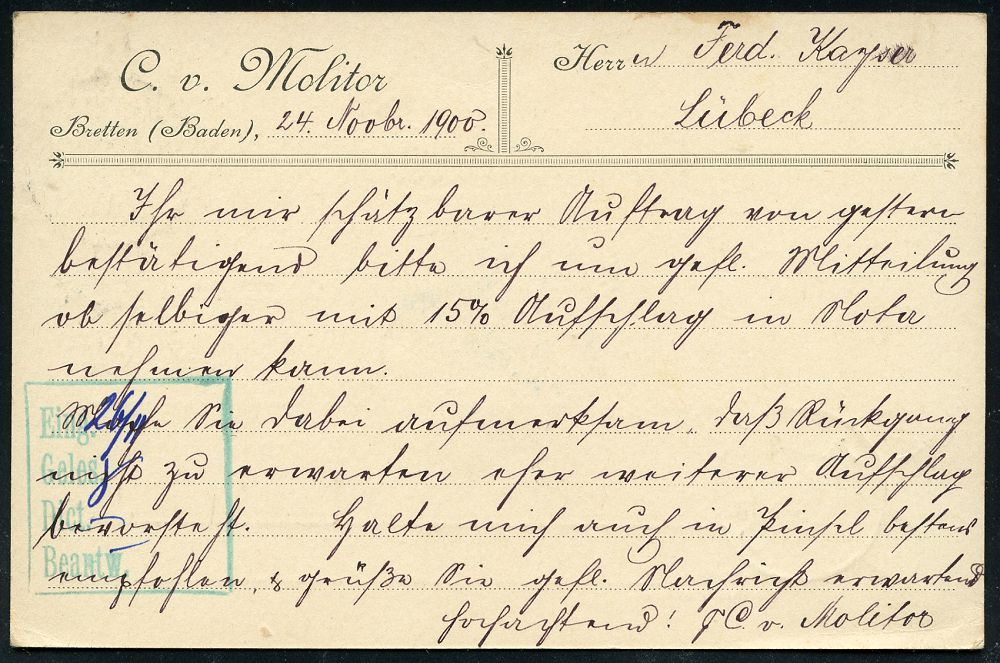 C. v. Molitor
Bretten (Baden), 24. Novbr. 1900.
Herrn Ferd. Kayser
Lübeck
Ihr mir schätzbarer Auftrag von gestern
bestätigend bitte ich um gefl. Mitteilung
ob selbiger mit 15% Aufschlag in Nota
nehmen kann.
Mache Sie dabei aufmerksam, daß Rückgang
nicht zu erwarten eher weiterer Aufschlag
bevorsteht. Halte mich auch in Pinsel bestens
empfohlen, & grüße Sie gefl. Nachricht erwartend
hochachtend! C. v. Molitor
Eing. 26/11
Geles.
Dict.
Beantw.